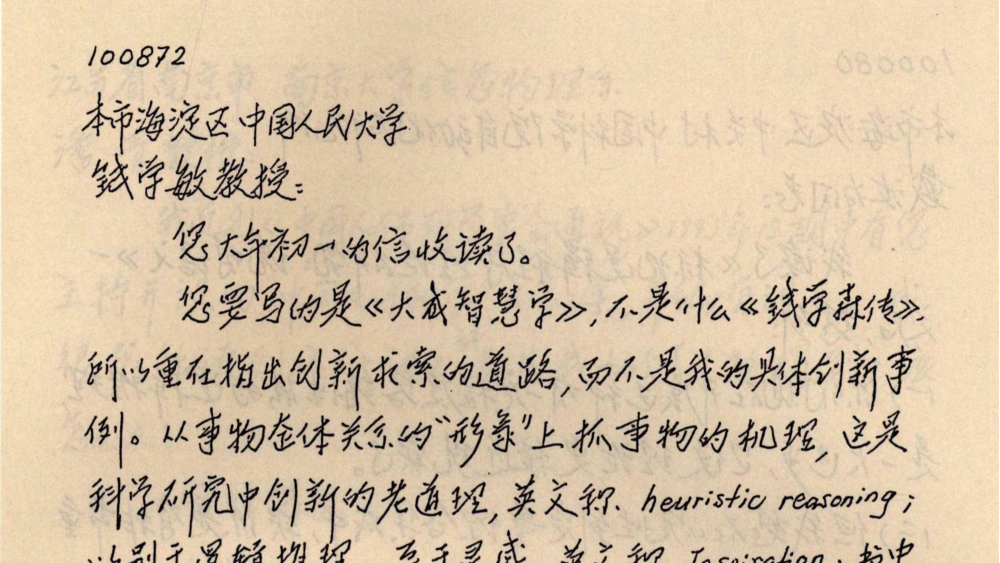 100872
本市海淀区中国人民大学
钱学敏教授:
您大年初一的信收读了。
您要写的是《大成智慧学》,不是什么《钱学森传》,
所以重在指出创新求索的道路,而不是我的具体创新事
例。从事物整体关系的“形象”上抓事物的机理,这是
科学研究中创新的老道理,英文称 heuristic reasoning;
以别于逻辑推理。至于灵感,英文称 Inspiration,